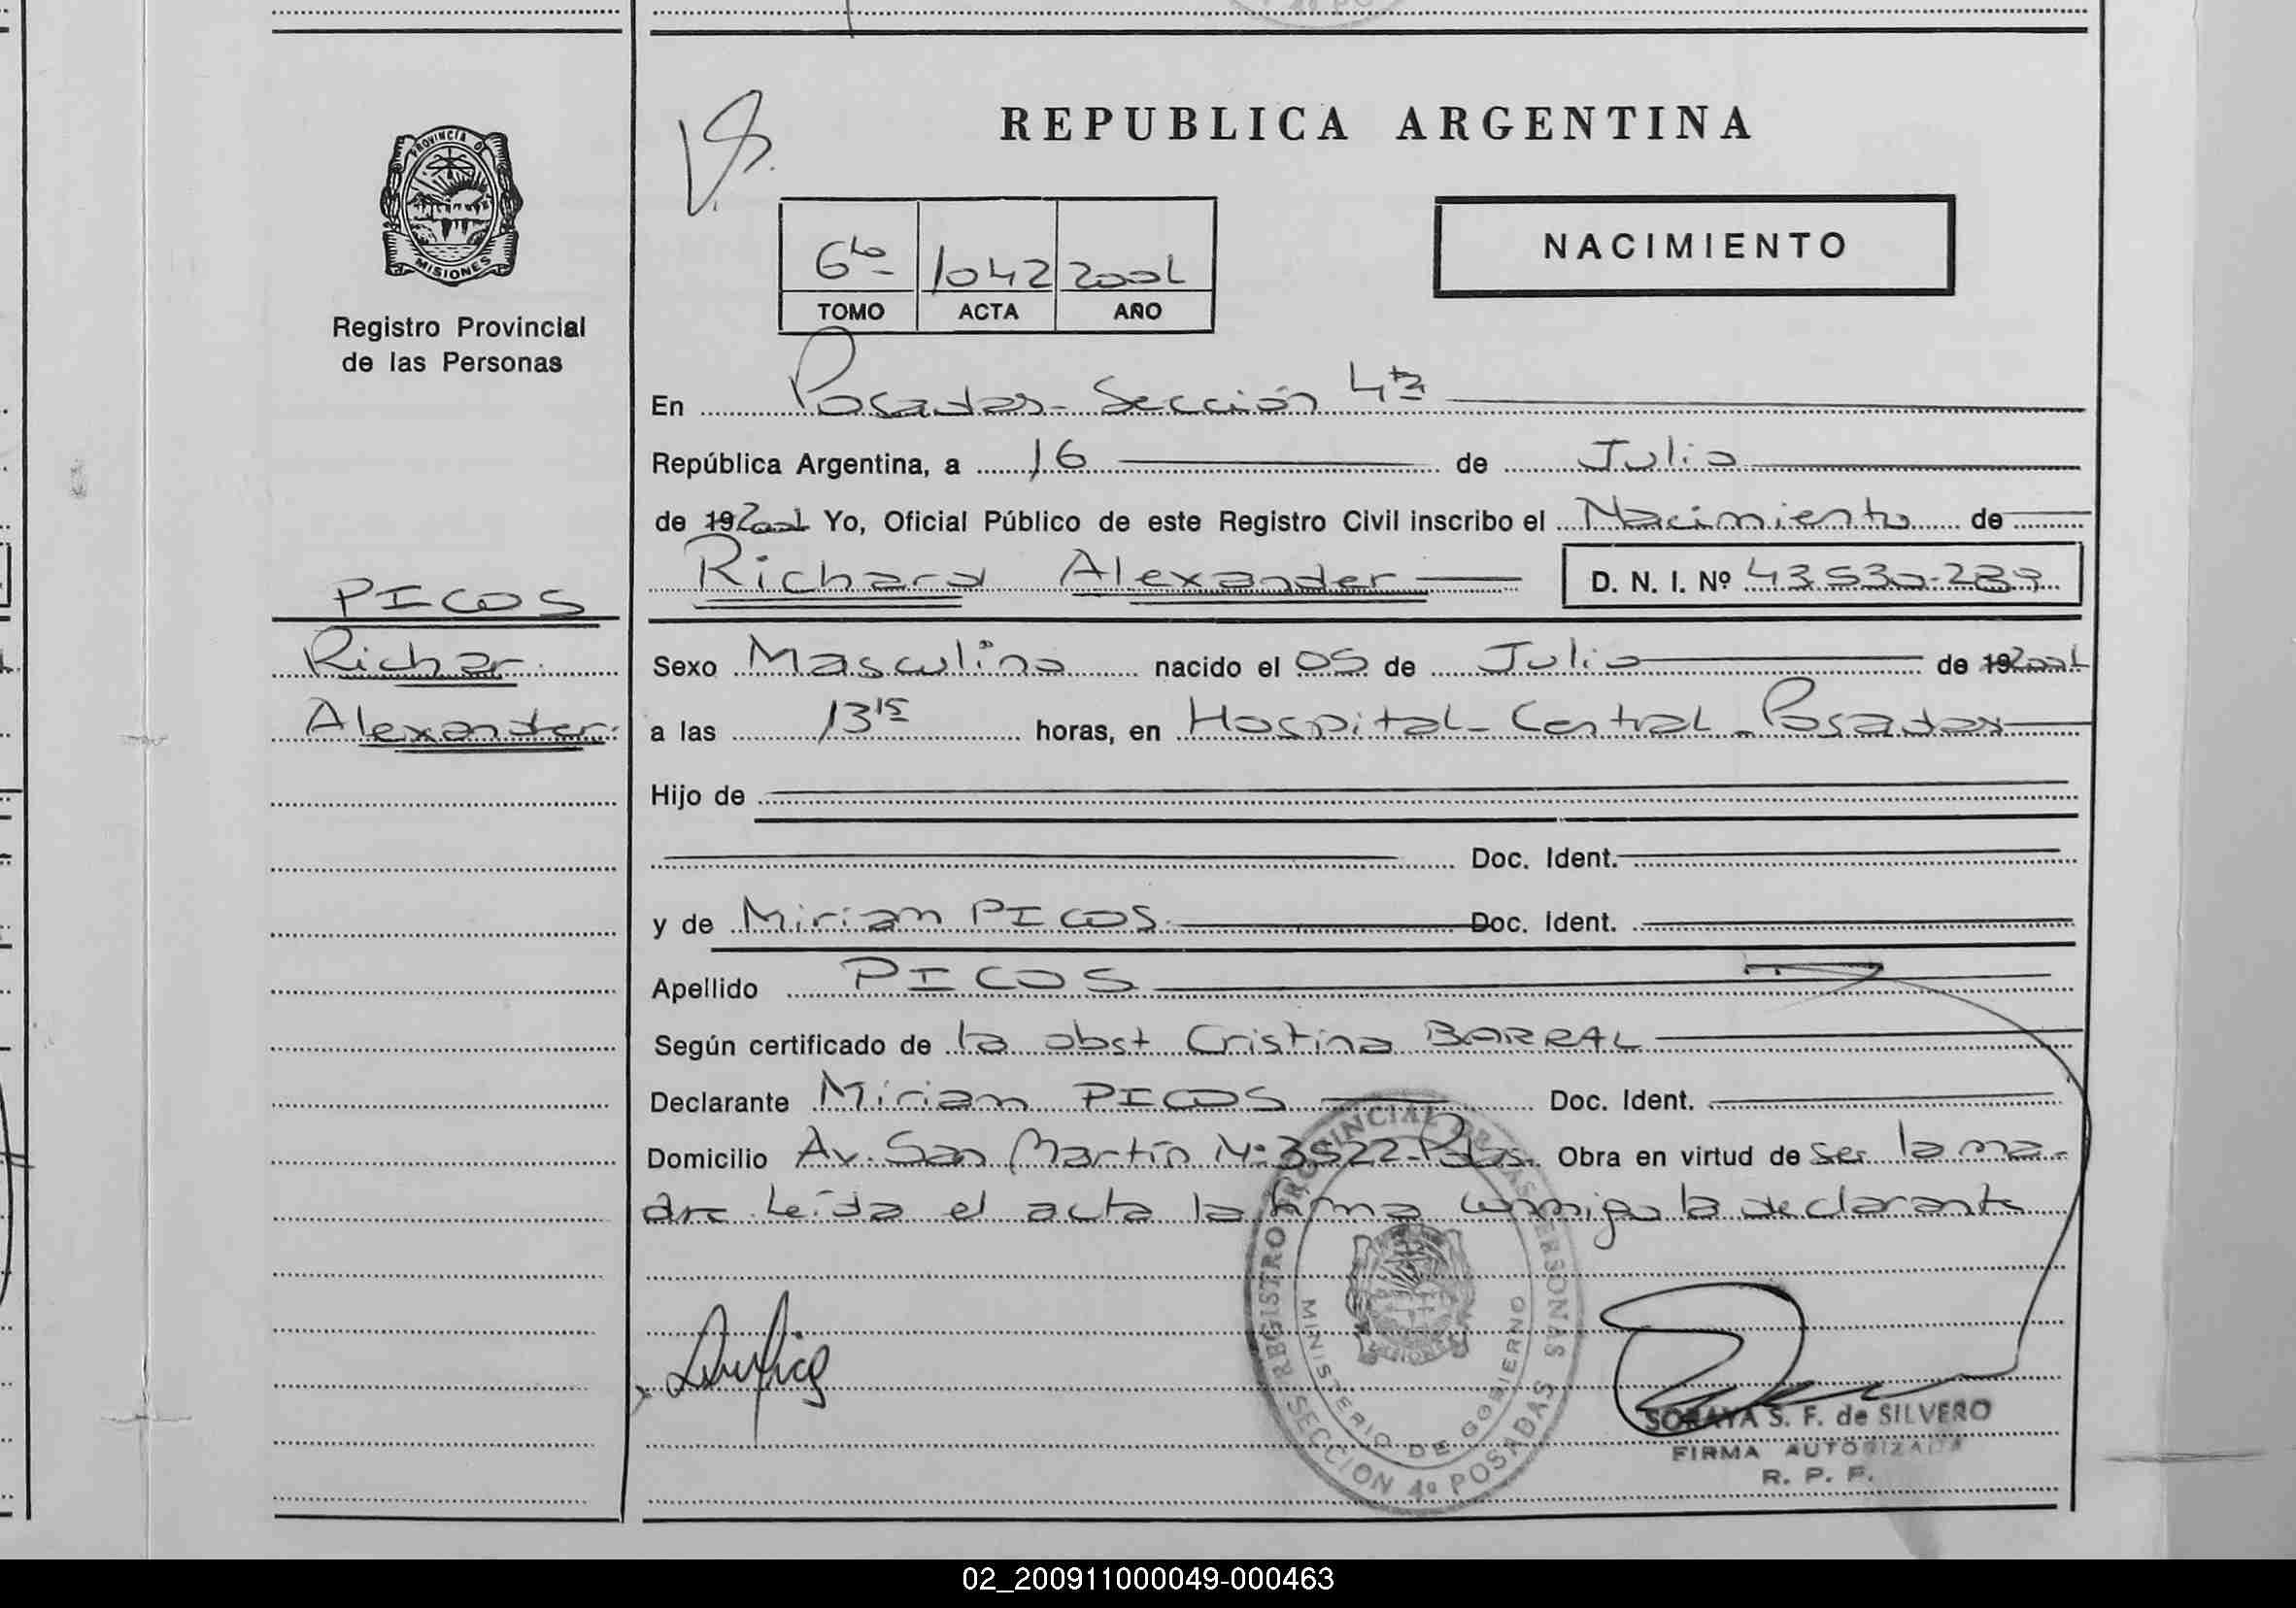 PROVINCIA DE
MISIONES
Registro Provincial
de las Personas
PICOS
Richar
Alexander
REPUBLICA ARGENTINA
NACIMIENTO
6to 1042 2001
TOMO ACTA AÑO
En Posadas - Sección 4ta
República Argentina, a 16 de Julio
de 192001 Yo, Oficial Público de este Registro Civil inscribo el Nacimiento de
Richard Alexander D. N. I. Nº 43.530.289
Sexo Masculino nacido el 05 de Julio de 192001
a las 13 15 horas, en Hospital - Central - Posadas
Hijo de
Doc. Ident.
y de Miriam PICOS Doc. Ident.
Apellido PICOS
Según certificado de la obst Cristina BARRAL
Declarante Miriam PICOS Doc. Ident.
Domicilio Av. San Martín Nº 3522 - Pdas. Obra en virtud de ser la ma-
dre Leída el acta la firma conmigo la declarante
REGISTRO PROVINCIAL DE LAS PERSONAS
MINISTERIO DE GOBIERNO
SECCION 4º POSADAS
SORAYA S. F. de SILVERO
FIRMA AUTORIZADA
R. P. P.
02_200911000049-000463